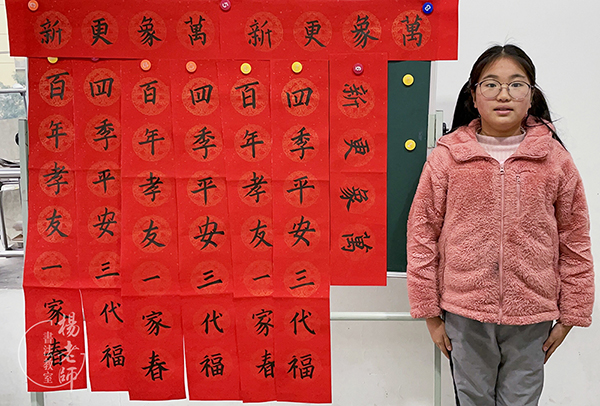 萬象更新萬象更新
新更象萬
四季平安三代福
百年孝友一家春
四季平安三代福
百年孝友一家春
四季平安三代福
百年孝友一家春
楊老師
書法教室